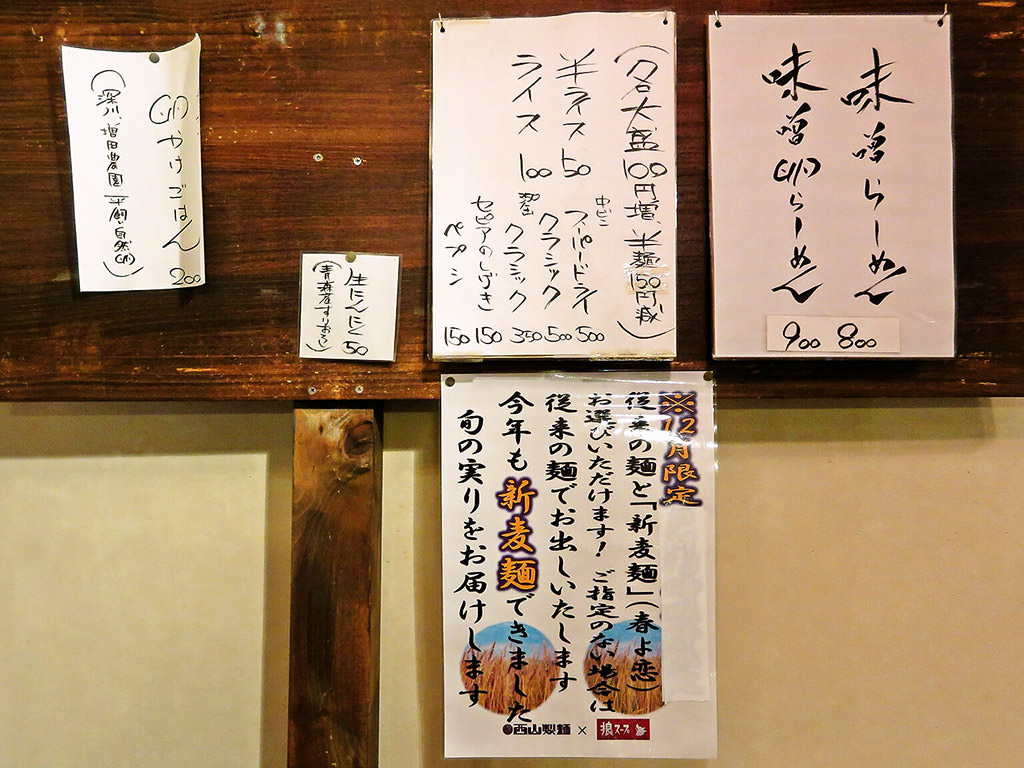 味噌らーめん 800
味噌卵らーめん 900
(各大盛100円増、半麺150円減)
半ライス 50
ライス 100
中ビン スーパードライ 500
クラシック 500
クラシック 350
セピアのしげき 150
ペプシ 150
生にんにく 50
(青森産すりおろし)
卵かけごはん 200
(深川、増田農園 平飼い自然卵)
※12月限定
従来の麺と「新麦麺」(春よ恋)
お選びいただけます! ご指定のない場合は
従来の麺でお出しいたします
今年も新麦麺できました
旬の実りをお届けします
西山製麺 × 狼スープ